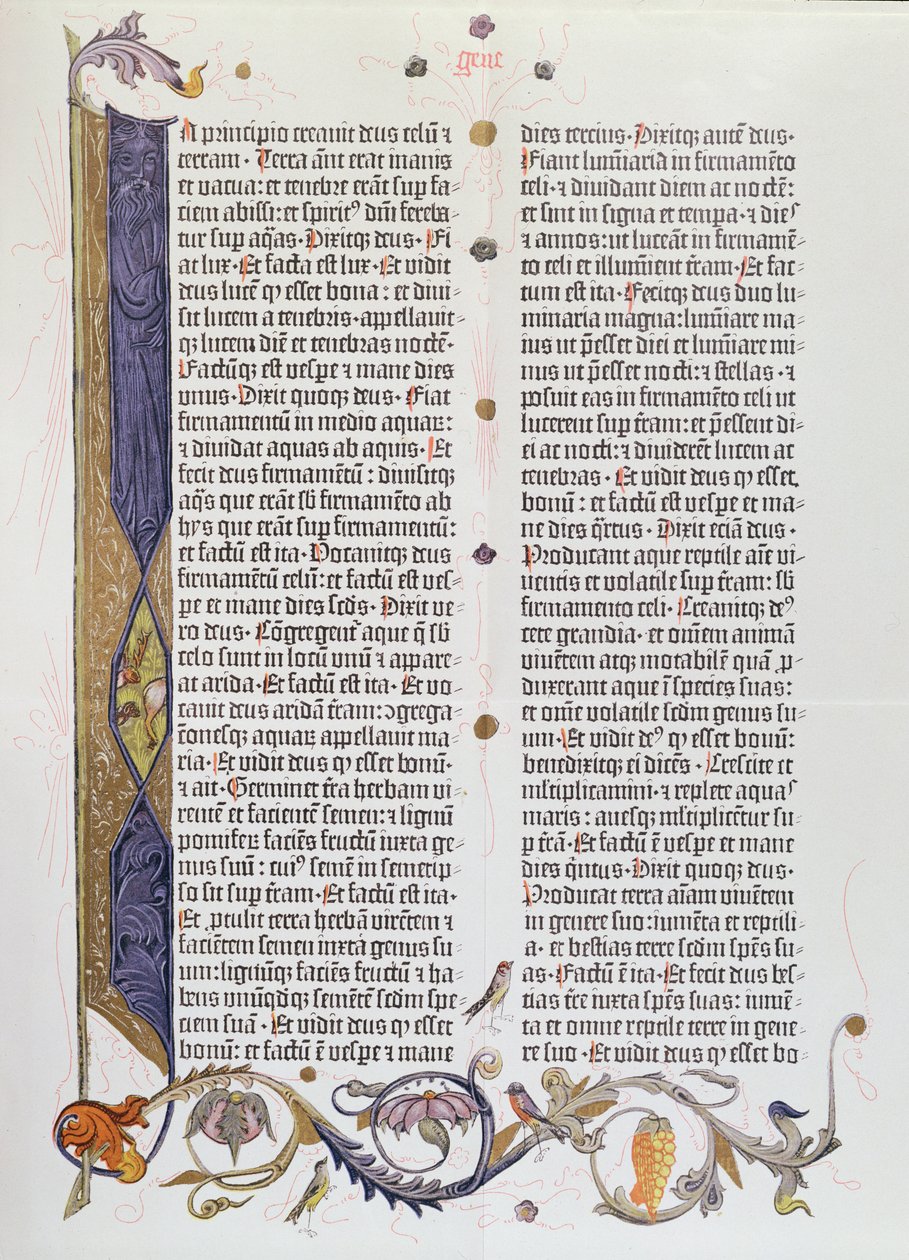 gene
In principio creauit deus celū ⁊
terram. Terra aūt erat inanis
et vacua: et tenebre erāt sup fa-
ciem abissi: et spiritꝰ dn̄i fereba-
tur sup aq̄as. Dixitqꝫ deus. Fi-
at lux. Et facta est lux. Et vidit
deus lucē ꝙ esset bona: et diui-
sit lucem a tenebris. appellauit-
qꝫ lucem diē et tenebras noctē.
Factūqꝫ est vespe ⁊ mane dies
vnus. Dixit quoqꝫ deus. Fiat
firmamentū in medio aquaꝝ:
⁊ diuidat aquas ab aquis. Et
fecit deus firmamētū: diuisitqꝫ
aq̄s que erāt sb̄ firmamēto ab
hys que erāt sup firmamentū:
et factū est ita. Vocauitqꝫ deus
firmamētū celū: et factū est ves-
pe et mane dies scd̄s. Dixit ve-
ro deus. Cōgregent aque q̄ sb̄
celo sunt in locū vnū ⁊ appare-
at arida. Et factū est ita. Et vo-
cauit deus aridā t̄ram: ꝯgrega-
c̄onesqꝫ aquaꝝ appellauit ma-
ria. Et vidit deus ꝙ esset bonū.
⁊ ait. Germinet t̄ra herbam vi-
rentē et facientē semen: ⁊ lignū
pomiferꝝ faciēs fructū iuxta ge-
nus suū: cuiꝰ semē in semetip-
so sit sup t̄ram. Et factū est ita.
Et ꝓtulit terra herbā virētem ⁊
faciētem semen iuxta genus su-
um: lignūqꝫ faciēs fructū ⁊ ha-
bens vnūqd̄qꝫ semētē scd̄m spe-
ciem suā. Et vidit deus ꝙ esset
bonū: et factū ē vespe ⁊ mane
dies tercius. Dixitqꝫ autē deus.
Fiant lumīaria in firmamēto
celi. ⁊ diuidant diem ac noctē:
et sint in signa et tempa. ⁊ dies
⁊ annos: ut luceāt in firmamē-
to celi et illumīent t̄ram. Et fac-
tum est ita. Fecitqꝫ deus duo lu-
minaria magna: lumīare ma-
ius ut p̄esset diei et lumīare mi-
nus ut p̄esset nocti: ⁊ stellas. ⁊
posuit eas in firmamēto celi ut
lucerent sup t̄ram: et p̄essent di-
ei ac nocti: ⁊ diuiderēt lucem ac
tenebras. Et vidit deus ꝙ esset
bonū: et factū est vespe et ma-
ne dies q̄rtus. Dixit eciā deus.
Producant aque reptile aīe vi-
uentis et volatile sup t̄ram: sb̄
firmamento celi. Creauitqꝫ deꝰ
cete grandia. et om̄em animā
viuētem atqꝫ motabilē quā ꝓ-
duxerant aque ī species suas:
et om̄e volatile scd̄m genus su-
um. Et vidit deꝰ ꝙ esset bonū:
benedixitqꝫ ei dicēs. Crescite et
ml̄tiplicamini. ⁊ replete aquas
maris: auesqꝫ ml̄tiplicēt̄ur su-
p t̄rā. Et factū ē vespe et mane
dies q̄ntus. Dixit quoqꝫ deus.
Producat terra aīam viuētem
in genere suo: iumēta et reptili-
a. et bestias terre scd̄m sp̄es su-
as. Factū ē ita. Et fecit deus bes-
tias t̄re iuxta sp̄es suas: iumē-
ta et omne reptile terre in gene-
re suo. Et vidit deus ꝙ esset bo-